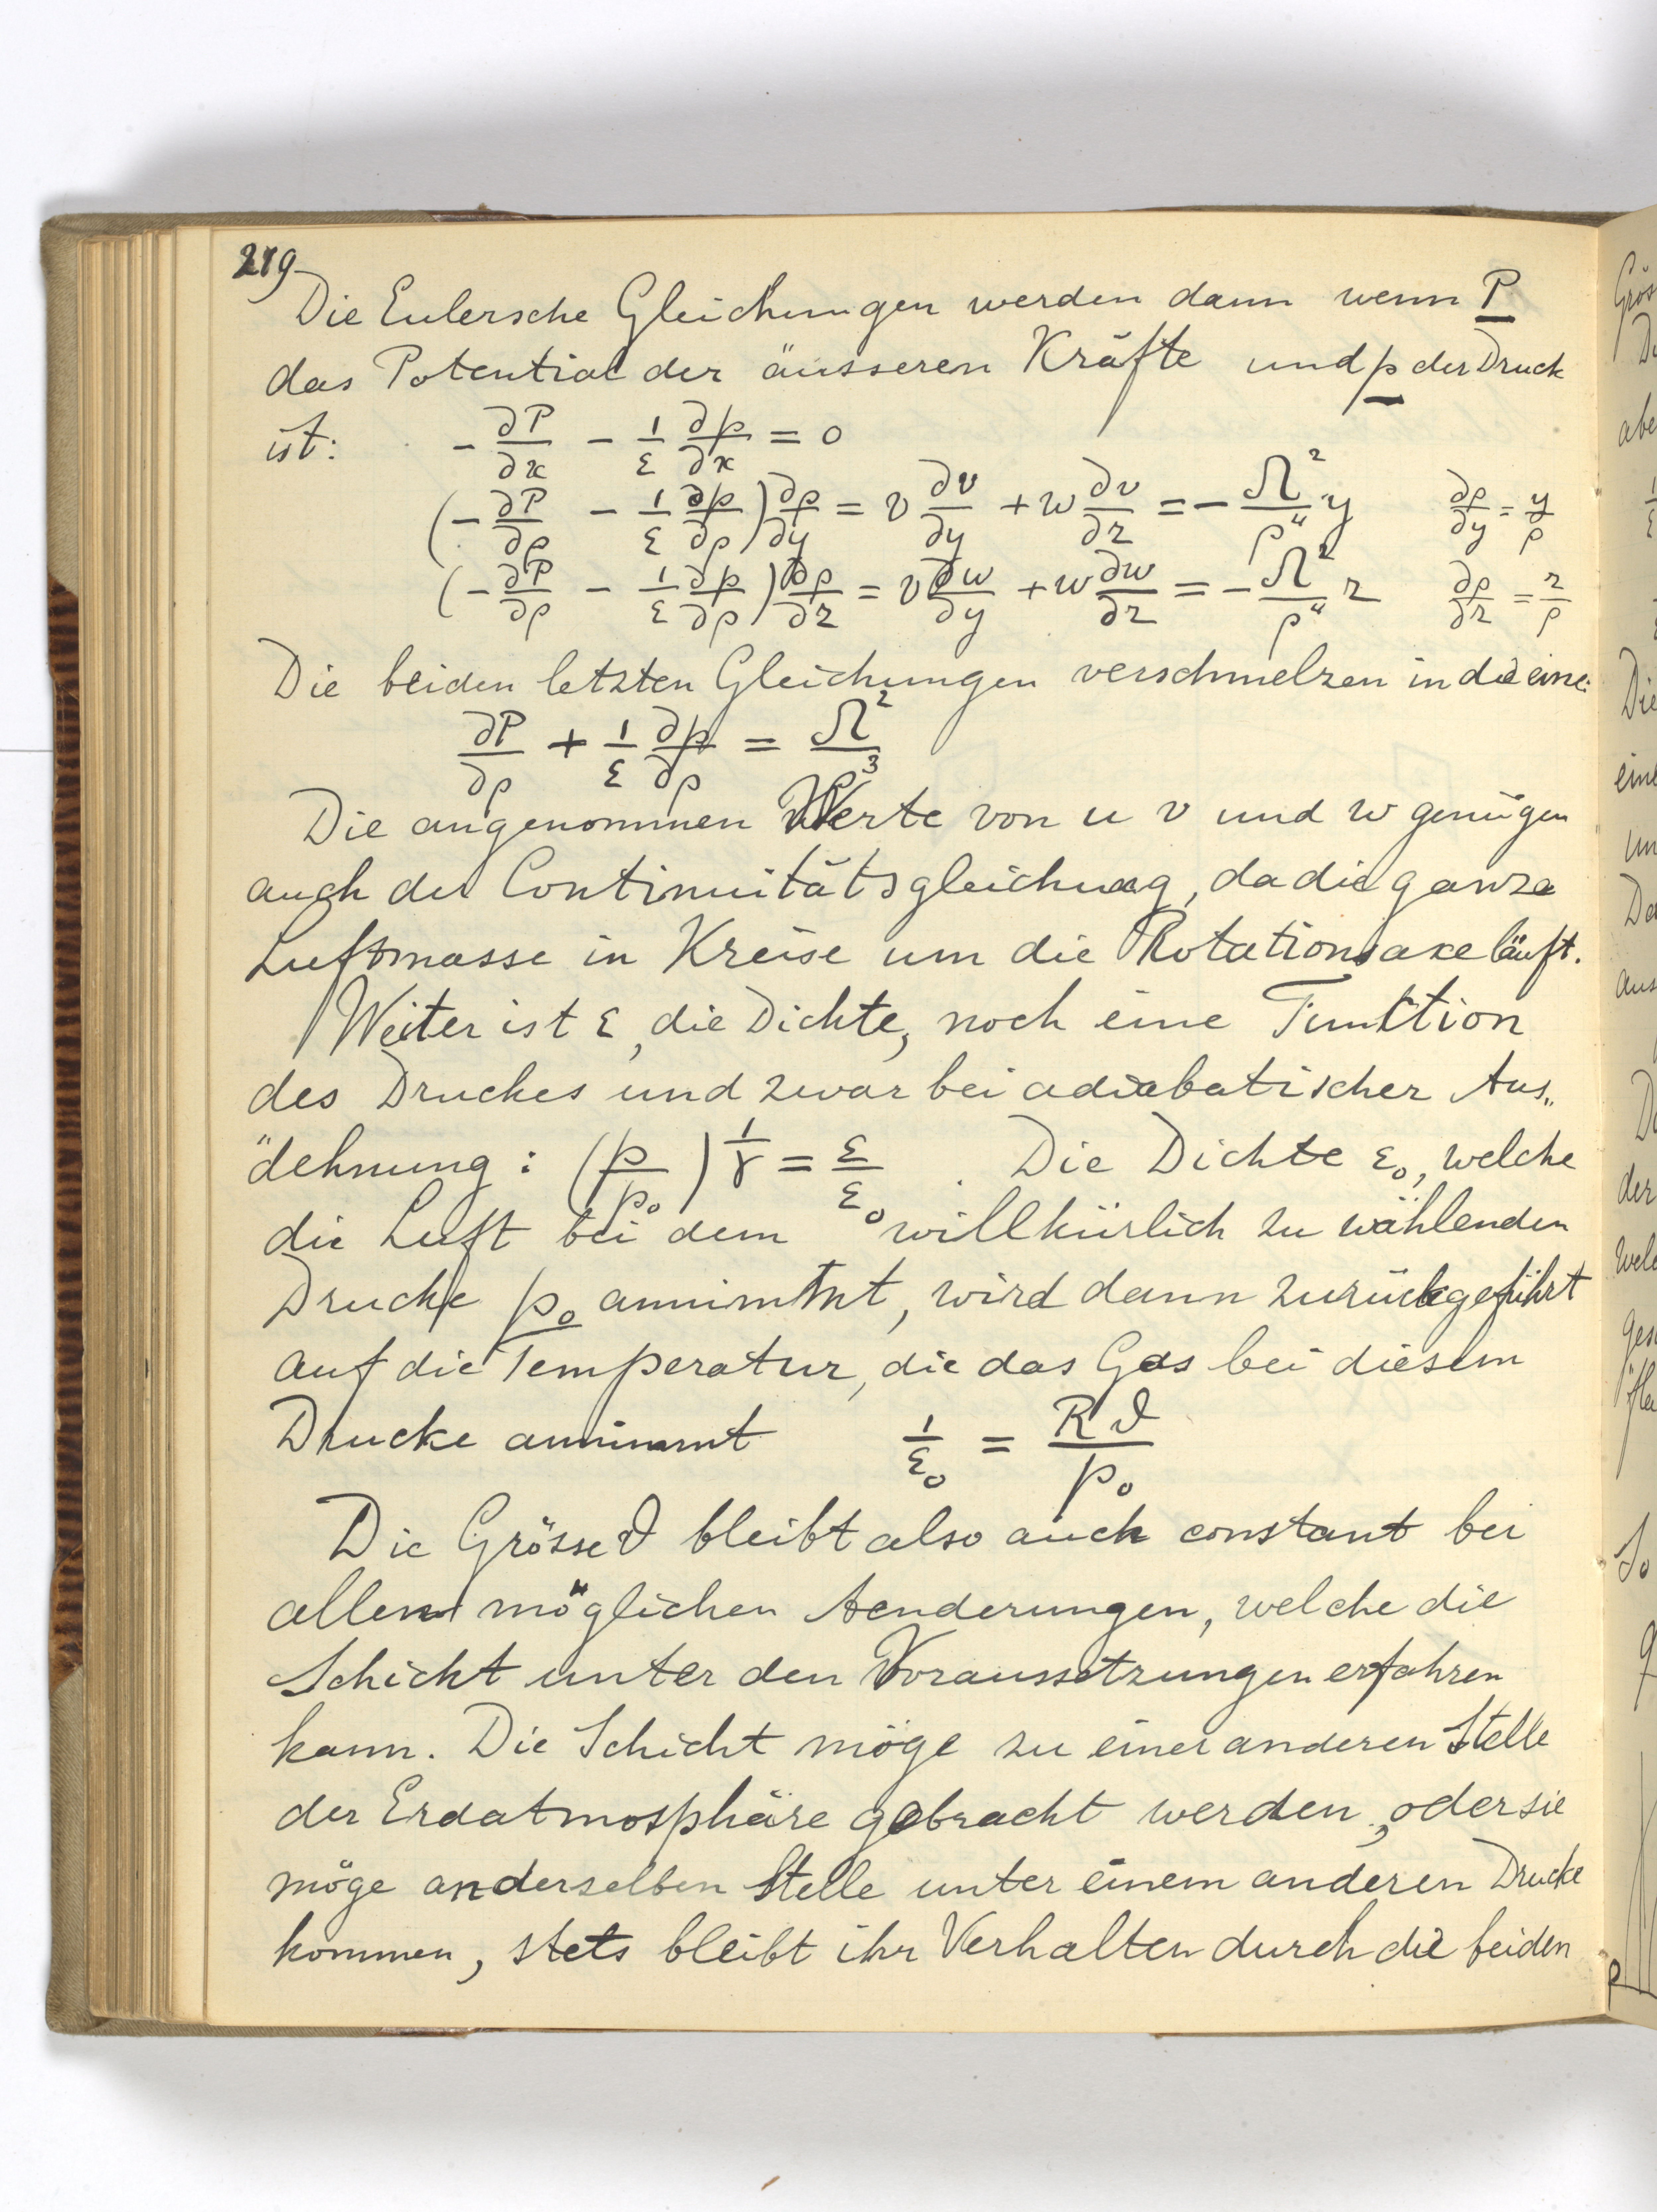 219
Die Eulersche Gleichungen werden dann wenn P
das Potential der äusseren Kräfte und p der Druck
ist: - ∂P/∂x - 1/ε ∂p/∂x = 0
(- ∂P/∂ρ - 1/ε ∂p/∂ρ) ∂ρ/∂y = v ∂v/∂y + w ∂v/∂z = - Ω²/ρ⁴ y   ∂ρ/∂y = y/ρ
(- ∂P/∂ρ - 1/ε ∂p/∂ρ) ∂ρ/∂z = v ∂w/∂y + w ∂w/∂z = - Ω²/ρ⁴ z   ∂ρ/∂z = z/ρ
Die beiden letzten Gleichungen verschmelzen in die eine:
∂P/∂ρ + 1/ε ∂p/∂ρ = Ω²/ρ³
Die angenommen Werte von u v und w genügen
auch der Continuitätsgleichung, da die ganze
Luftmasse in Kreise um die Rotationsaxe läuft.
Weiter ist ε, die Dichte, noch eine Funktion
des Druckes und zwar bei adiabatischer Aus„
"dehnung: (p/p₀)^(1/γ) = ε/ε₀. Die Dichte ε₀, welche
die Luft bei dem willkürlich zu wählenden
Drucke p₀ annimmt, wird dann zurückgeführt
auf die Temperatur, die das Gas bei diesem
Drucke annimmt 1/ε₀ = Rϑ/p₀
Die Grösse ϑ bleibt also auch constant bei
allen möglichen Aenderungen, welche die
Schicht unter den Voraussetzungen erfahren
kann. Die Schicht möge zu einer anderen Stelle
der Erdatmosphäre gebracht werden, oder sie
möge an derselben Stelle unter einem anderen Drucke
kommen, stets bleibt ihr Verhalten durch die beiden